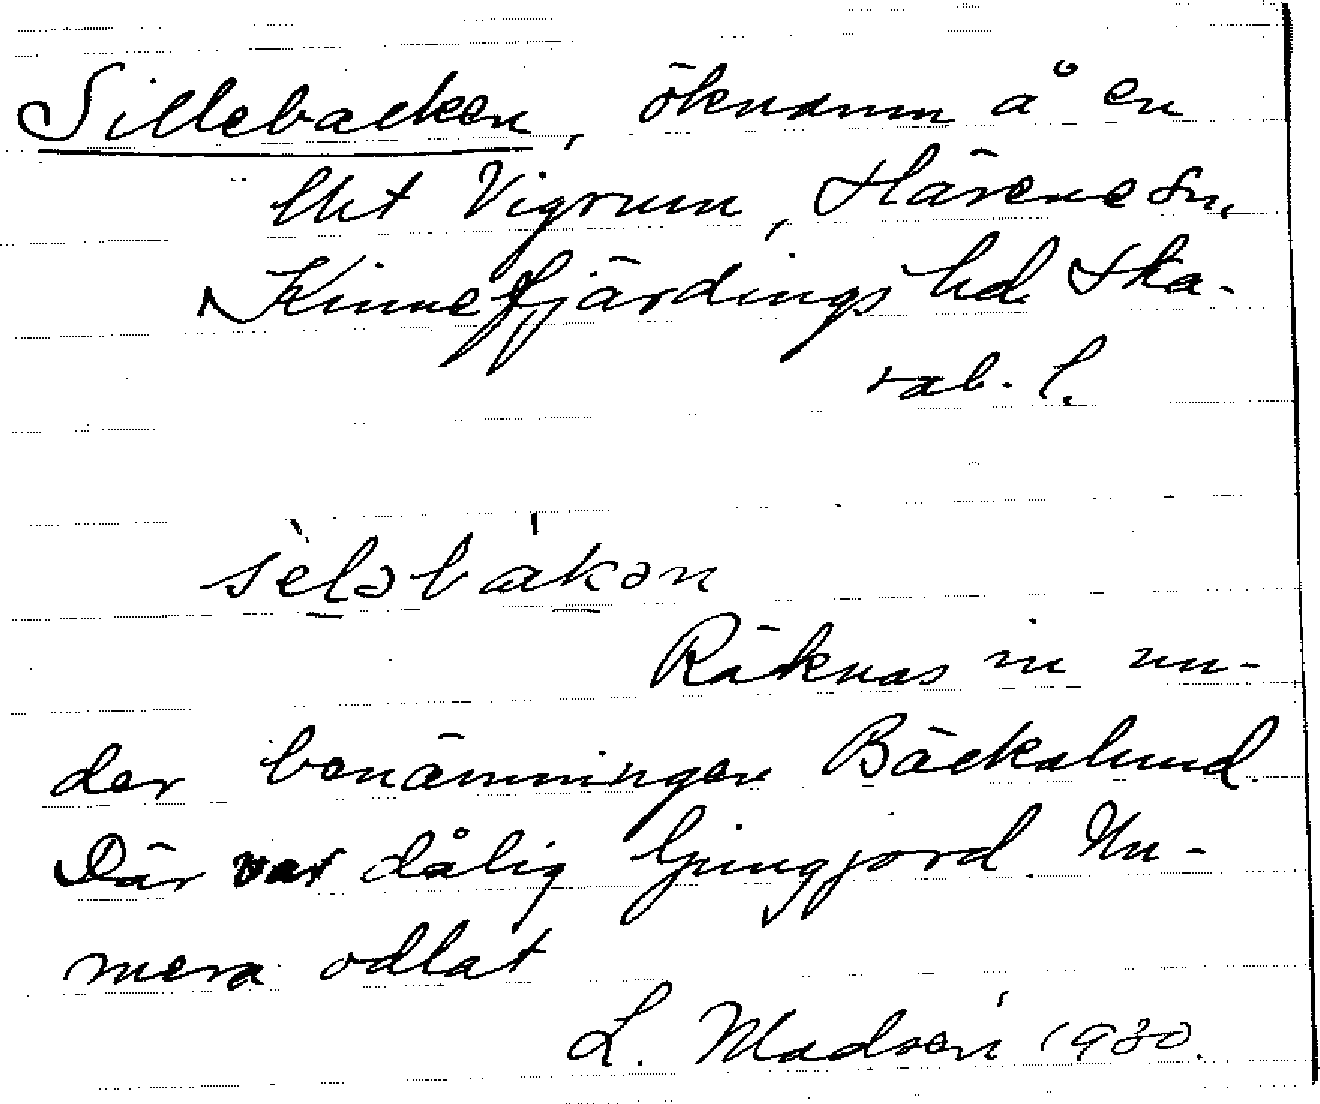 Sillebacken, öknamn å en
lht Vigrum, Härene sn,
Kinnefjärdings hd Ska-
rab. l.
sèləbákən
Räknas in un-
der benämningen Bäckalund.
Där var dålig ljungjord Nu-
mera odlat
L. Madsén 1930.